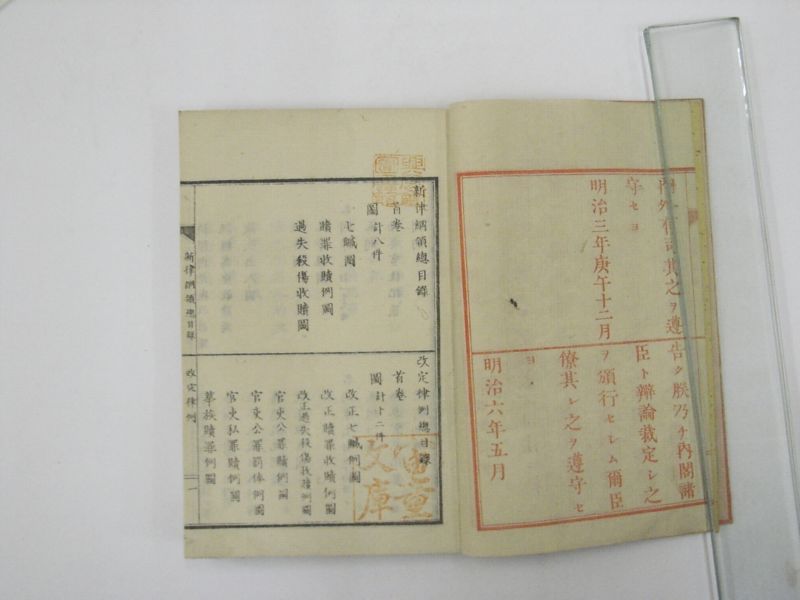 內外有司其之ヲ遵
守セヨ
明治三年庚午十二月
告ク朕乃チ內閣諸
臣ト辯論裁定シ之
ヲ頒行セシム爾臣
僚其レ之ヲ遵守セ
ヨ
明治六年五月
新律綱領總目錄
首卷
圖計八件
七贓圖
贖罪收贖例圖
過失殺傷收贖圖
改定律例總目錄
首卷
圖計十二件
改正七贓例圖
改正贖罪收贖例圖
改正過失殺傷收贖例圖
官吏公罪贖例圖
官吏公罪罰俸例圖
官吏私罪贖例圖
華族贖罪例圖
新律綱領總目錄
改定律例
一
文庫